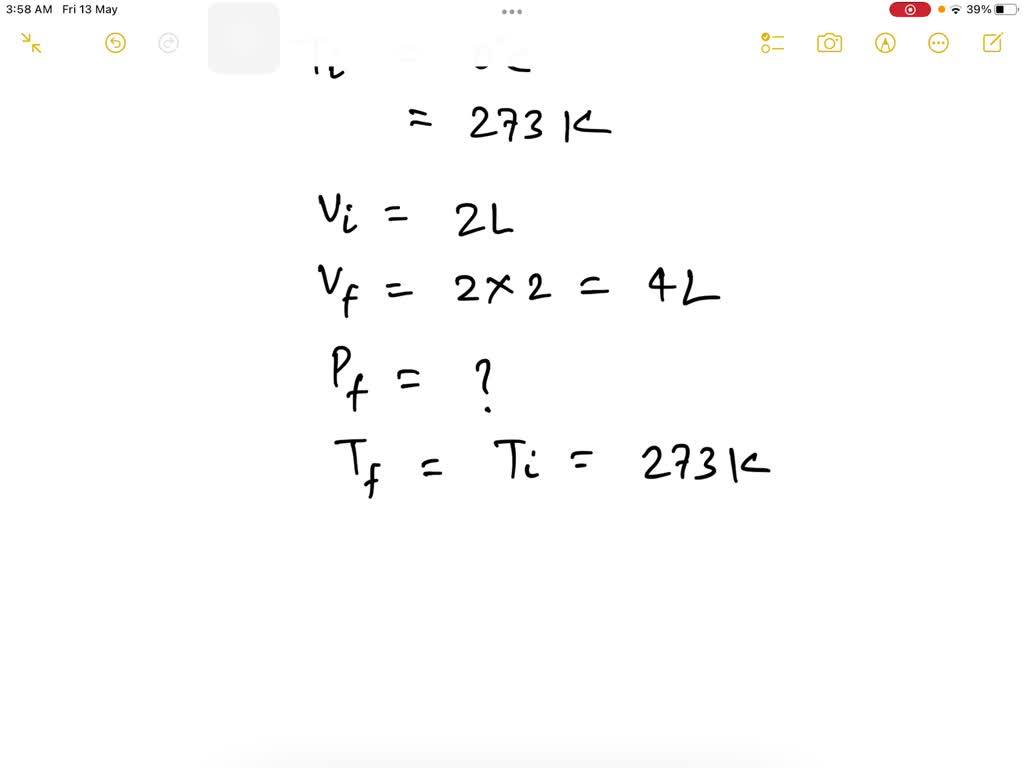 3:58 AM Fri 13 May
39%
= 273 K
Vi = 2L
Vf = 2×2 = 4L
Pf = ?
Tf = Ti = 273 K